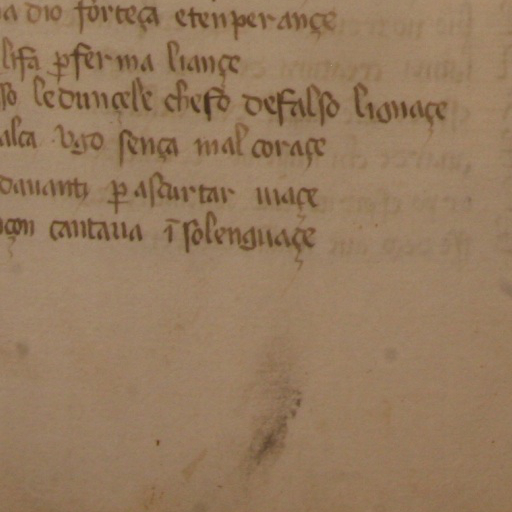 a dio forteça et enperançe
li fa ꝑ ferma liançe
so le dunçele che fo de falso lignaçe
alca vgo sença mal coraçe
dauanti ꝑ ascurtar uiaçe
çon cantaua ī so lenguaçe